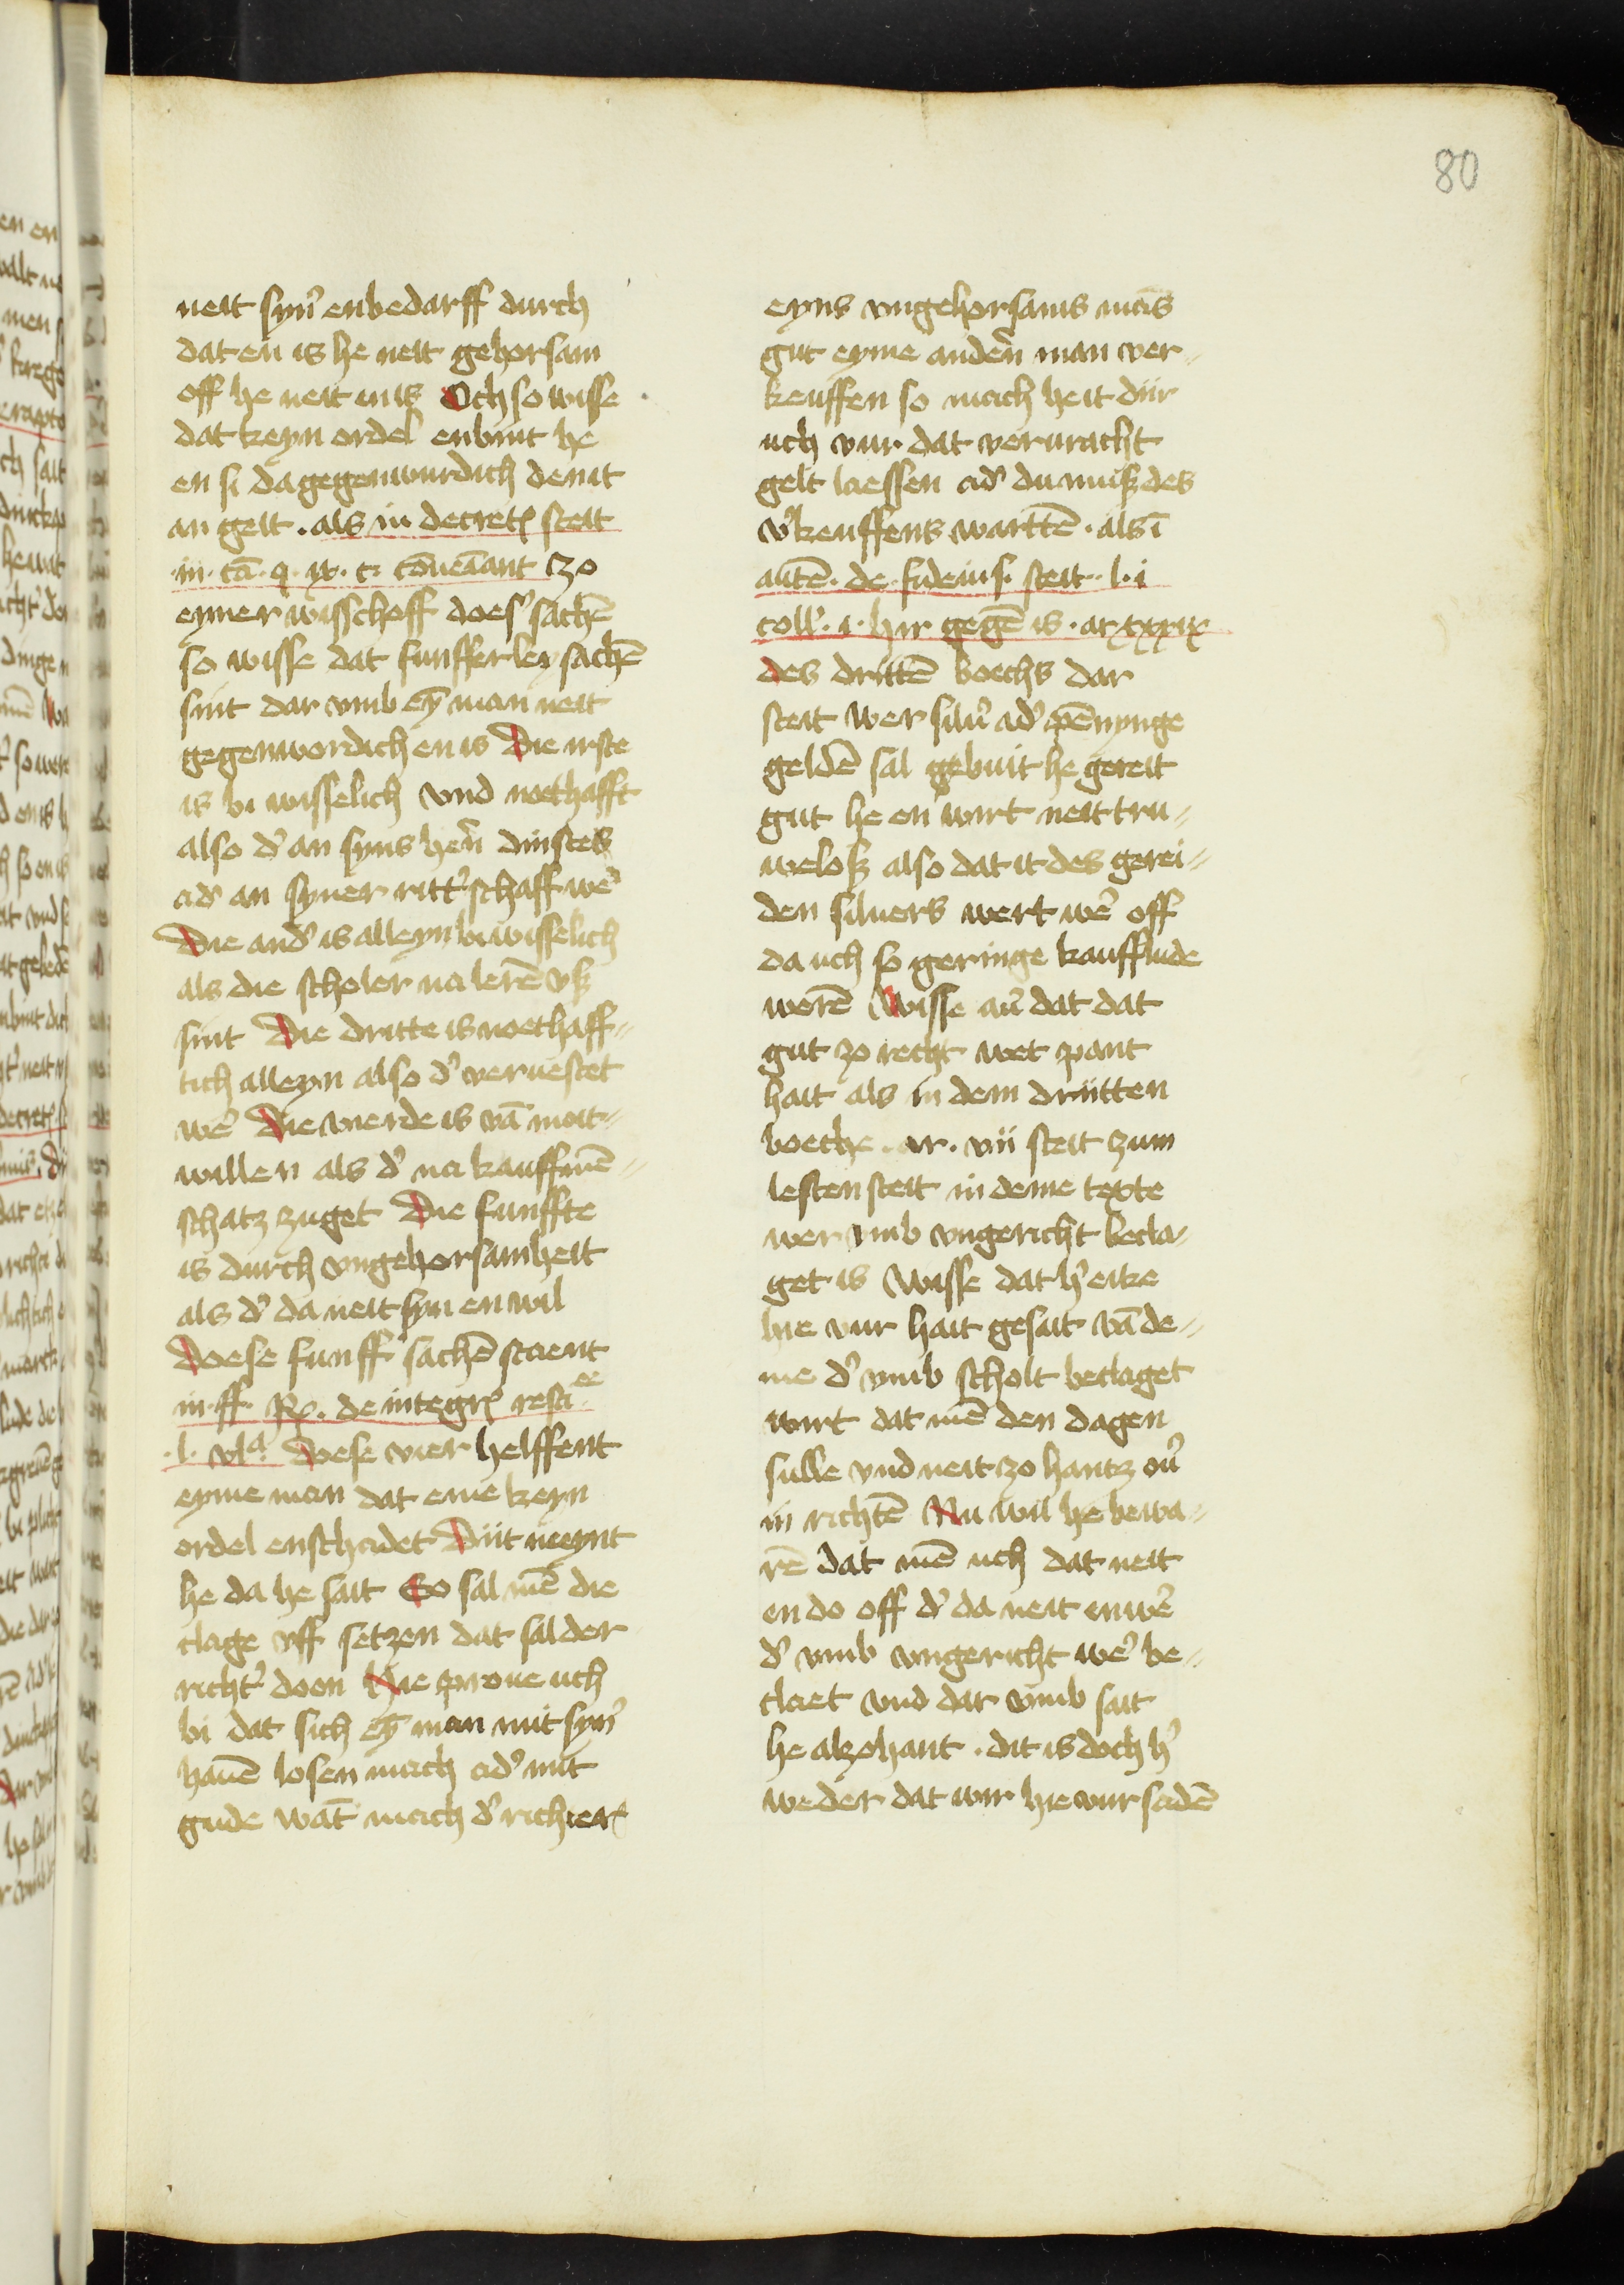 80
neit syn̄ enbedarff durch
dat en is he neit gehorsam
off he neit inis Och so wisse
dat keyn ordel enbint he
en si dagegenwurdich de mit
an geit . als in decret steit
.iii. cā. q. ix. c. cōueīant zo
eyner wisschoff does' sachē
so wisse dat funfferley sachē
sint dar vmb eȳ man neit
gegenwordich en is Die irste
is bi wisselich vnd noethafft
also d' an syns hern̄ dinstes
ad' an syner ritt'schaff we'
Die and' is alleyn bi wisselich
als die scholer na lerē vß
sint Die dritte is noethaff-
tich alleyn also d' veruestet
we' Die vierde is vā moit-
willen als d' na kauffmē-
schatz zuget Die funffte
is durch vngehorsamheit
als d' da neit syn en wil
Doese funff sachē staent
in .ff. Rx. de integr restı
.l. vlᵃ. Doese vier helffent
eyme man dat eme keyn
ordel enschadet Dit meynt
he da he sait So sal mē die
clage vff setzen dat sal der
richt' doon Hie proue uch
bi dat sich eȳ man mit syn'
hauē losen mach ad' mit
gude wāt mach d' richter
eyns vngehorsams mās
gut eyme andern man ver-
keuffen so mach he it dür
uch vur dat verwracht
gelt laessen ad' du mūß des
v'keuffens wartē . als ī
autē. de. fideiusſ. steit . l. i
coll'. i. hir gegē is . ar xxxix
des drittē boechs dar
steit wer silu' ad' pēnynge
geldē sal gebuit he gereit
gut he en wirt neit tru-
weloß also dat it des gerei-
den siluers wert we' off
da uch so geringe kaufflude
werē Wisse au' dat dat
gut zo recht wet pant
hait als in dem dritten
boeche . ar. vii steit zum
lesten steit in deme texte
wer vmb vngericht becla-
get is Wisse dat h' eike
hie vur hait gesait vā de-
me d' vmb scholt beclaget
wirt dat mē den dagen
sulle vnd neit zo hantz ou'
in richtē Nu wil he bewa-
rē dat mē uch dat neit
en do off d' da neit enwe'
d' vmb vngericht we' be-
claet vnd dar vmb sait
he alzohant . dit is doch h'
weder dat wir hie vur saidē